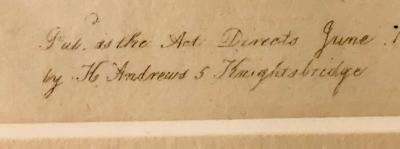 Pub.d as the Act Directs June 1
by H Andrews 5 Knightsbridge